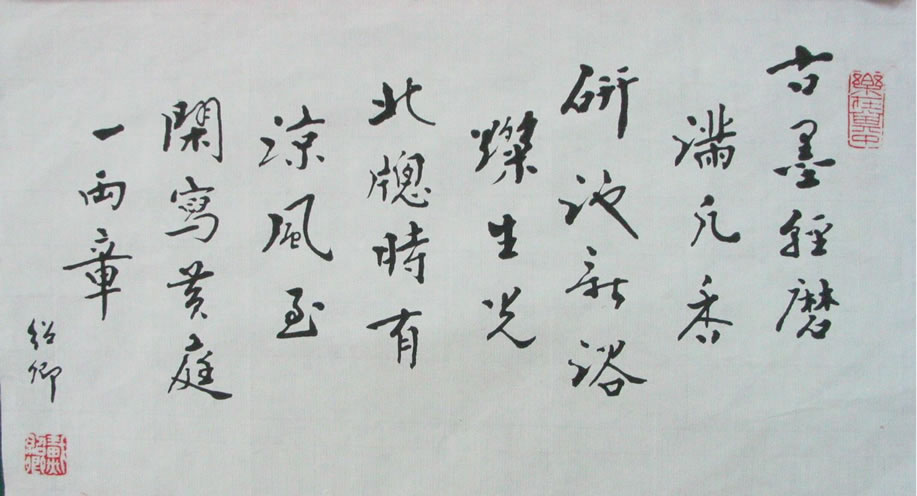 樂在其中
古墨輕磨
滿几香
研池新浴
燦生光
北牕時有
涼風至
閑寫黃庭
一兩章
紹卿